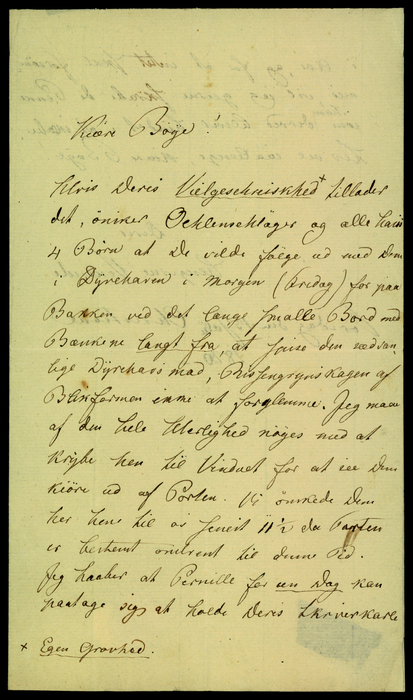 Kiære Böÿe!
Hvis Deres Vielgeschriskhed + tillader
det, önsker Oehlenschläger og alle hans
4 Börn at De vilde følge ud med dem
i Dÿrehaven i Morgen (Fredag) for paa
Bakken ved det lange smalle Bord med
Bænkene langt fra at spise den sædvan
lige Dÿrehavsmad, Risengrynskagen af
Blikformen ikke at forglemme. Jeg maa
af den hele Herlighed nøyes med at
krÿbe hen til Vinduet for at see dem
kiöre ud af Porten. Vi önskede Dem
her hene til os senest 11 1/2 da Farten
er bestemt omtrent til denne Tid.
Jeg haaber at Pernille for een Dag kan
paatage sig at holde Deres Skriverkarle
+ Egen Grovhed.